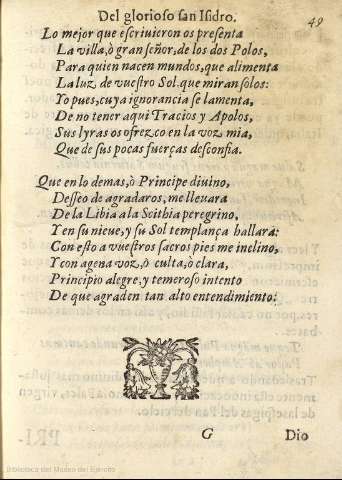 Del glorioso san Isidro.
49
Lo mejor que escriuieron os presenta
La villa, ò gran señor, de los dos Polos,
Para quien nacen mundos, que alimenta
La luz de vuestro Sol, que miran solos:
Yo pues, cuya ignorancia se lamenta,
De no tener aqui Tracios y Apolos,
Sus lyras os ofrezco en la voz mia,
Que de sus pocas fuerças desconfia.
Que en lo demas, ò Principe diuino,
Desseo de agradaros, me lleuara
De la Libia a la Scithia peregrino,
Y en su nieue, y su Sol templança hallara:
Con esto a vuestros sacros pies me inclino,
Y con agena voz, ò culta, ò clara,
Principio alegre, y temeroso intento
De que agraden tan alto entendimiento:
G
Dio
Biblioteca del Museo del Ejército